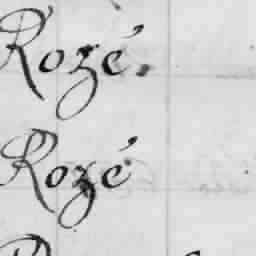 Rozé.
Rozé